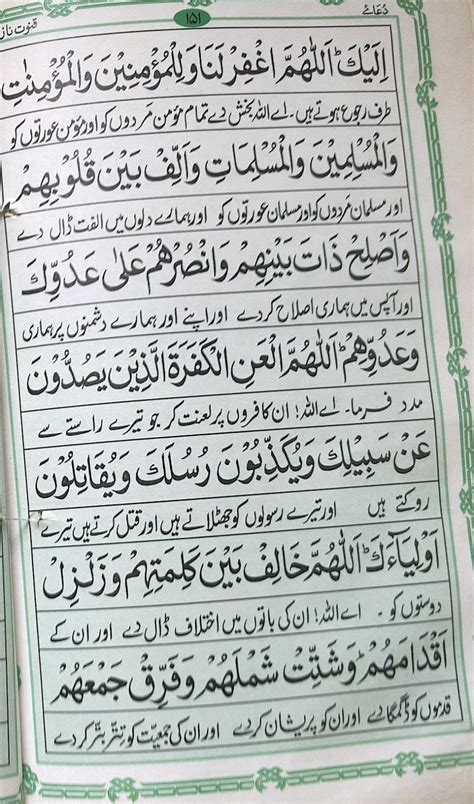 دُعائے ۱۵۱ قنوت ناز
اِلَيْكَ اَللّٰهُمَّ اغْفِرْ لَنَا وَلِلْمُؤْمِنِيْنَ وَالْمُؤْمِنٰتِ
طرف رجوع ہوتے ہیں۔ اے اللہ بخش دے تمام مؤمن مَردوں کو اور مؤمن عورتوں کو
وَالْمُسْلِمِيْنَ وَالْمُسْلِمَاتِ وَاَلِّفْ بَيْنَ قُلُوْبِهِمْ
اور مسلمان مَردوں کو اور مسلمان عورتوں کو اور ہمارے دلوں میں الفت ڈال دے
وَاَصْلِحْ ذَاتَ بَيْنِهِمْ وَانْصُرْهُمْ عَلٰى عَدُوِّكَ
اور آپس میں ہماری اصلاح کر دے اور اپنے اور ہمارے دشمنوں پر ہماری
وَعَدُوِّهِمْ اَللّٰهُمَّ الْعَنِ الْكَفَرَةَ الَّذِيْنَ يَصُدُّوْنَ
مدد فرما۔ اے اللہ! ان کافروں پر لعنت کر جو تیرے راستے سے
عَنْ سَبِيْلِكَ وَيُكَذِّبُوْنَ رُسُلَكَ وَيُقَاتِلُوْنَ
روکتے ہیں اور تیرے رسولوں کو جھٹلاتے ہیں اور قتل کرتے ہیں تیرے
اَوْلِيَآءَكَ اَللّٰهُمَّ خَالِفْ بَيْنَ كَلِمَتِهِمْ وَزَلْزِلْ
دوستوں کو ۔ اے اللہ! ان کی باتوں میں اختلاف ڈال دے اور ان کے
اَقْدَامَهُمْ وَشَتِّتْ شَمْلَهُمْ وَفَرِّقْ جَمْعَهُمْ
قدموں کو ڈگمگا دے اور ان کو پریشان کر دے اور ان کی جمعیت کو تتر بتر کر دے